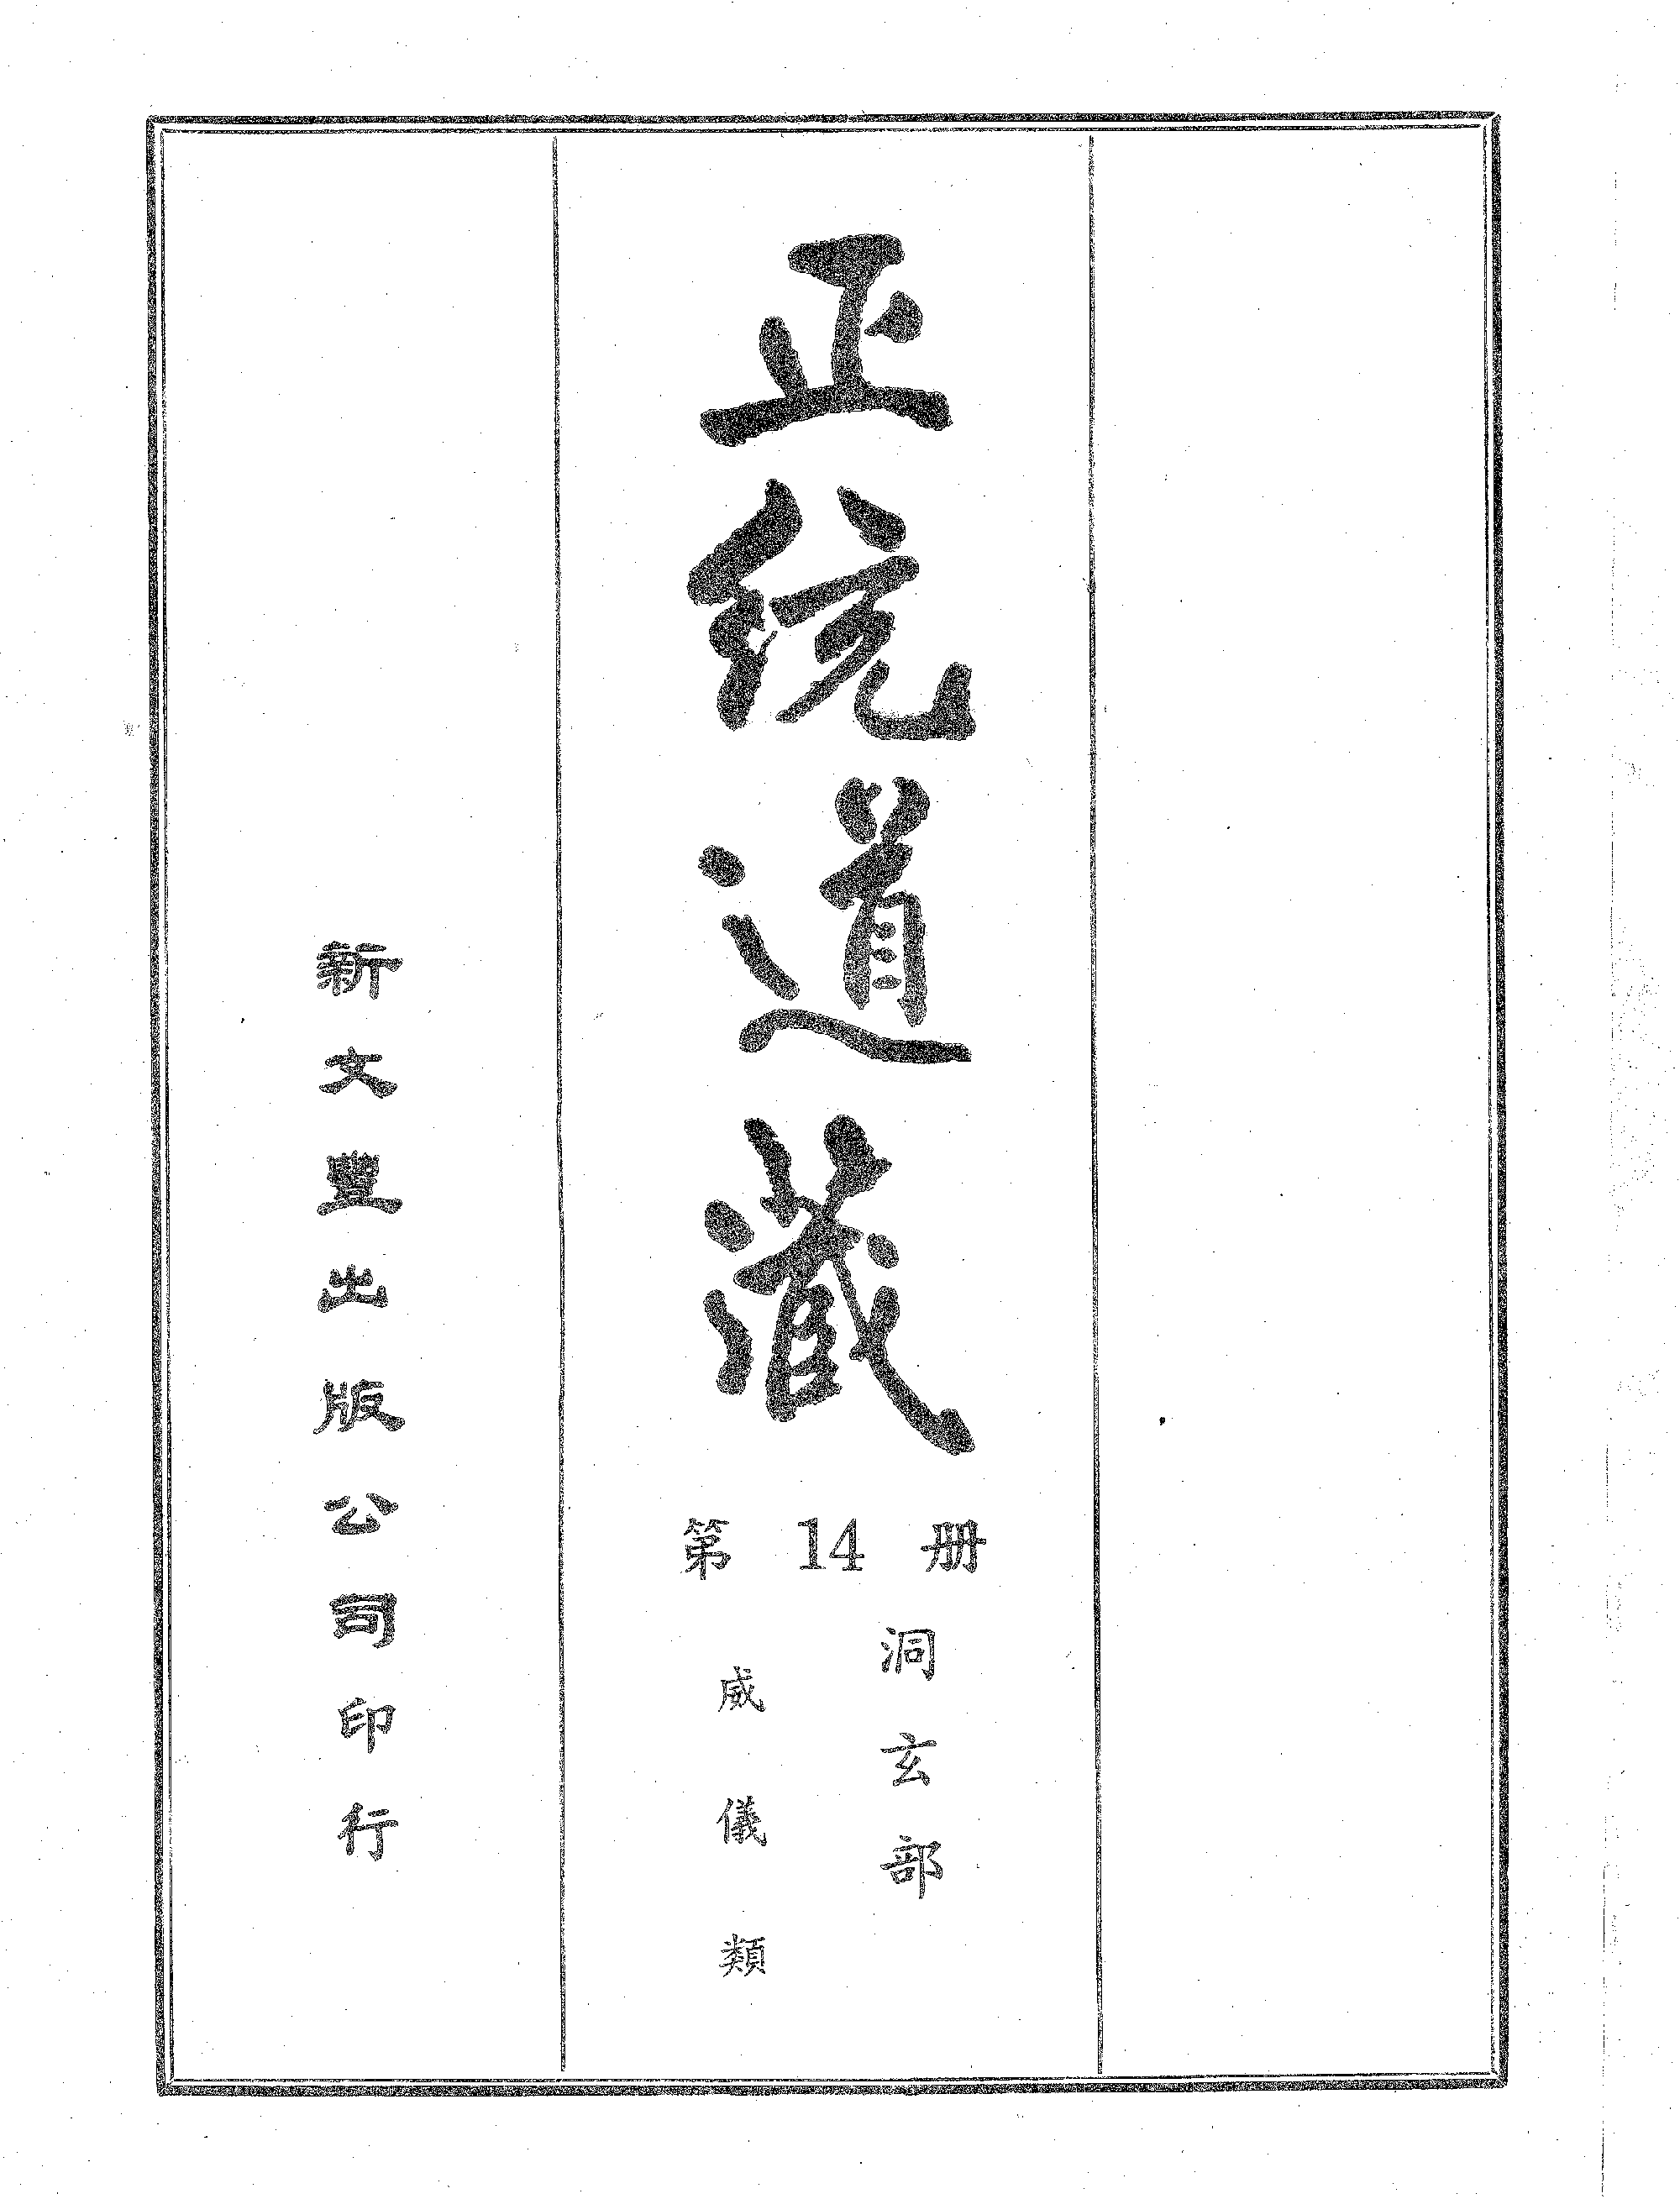 正統道藏
第14册
洞玄部
威儀類
新文豐出版公司印行